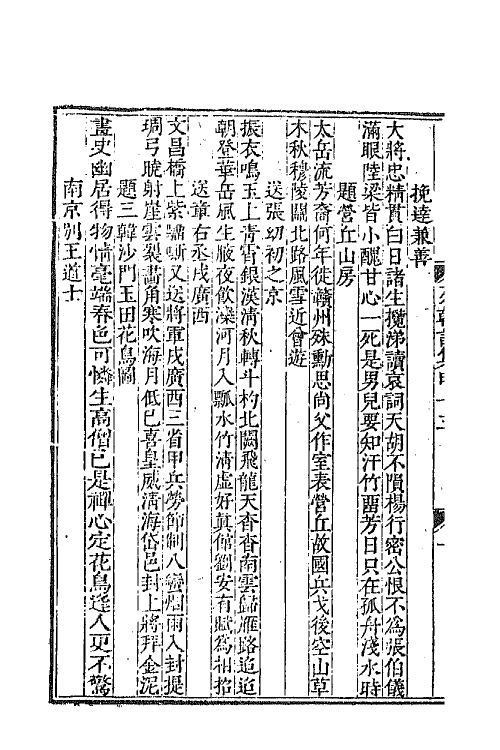 挽達兼善
大將忠精貫白日諸生攬涕讀哀詞天胡不隕楊行密公恨不為張伯儀
滿眼陸梁皆小醜甘心一死是男兒要知汗竹留芳日只在孤舟淺水時
題營丘山房
太岳流芳裔何年徙贛州殊勳思尚父作室表營丘故國兵戈後空山草
木秋穆陵關北路風雪近曾遊
送張幼初之京
振衣鳴玉上青霄銀漢清秋轉斗杓北闕飛龍天杳杳南雲歸雁路迢迢
朝登華岳風生腋夜飲灤河月入瓢水竹清虛好真館劉安有賦為相招
送章右丞戌廣西
文昌橋上紫驪嘶又送將軍戌廣西三省甲兵勞節制八蠻烟雨入封提
琱弓曉射崖雲裂畵角寒吹海月低已喜皇威清海岱邑封上將拜金泥
題三韓沙門玉田花鳥圖
畵史幽居得物情毫端春色可憐生高僧已是禪心定花鳥逢人更不驚
南京別王道士